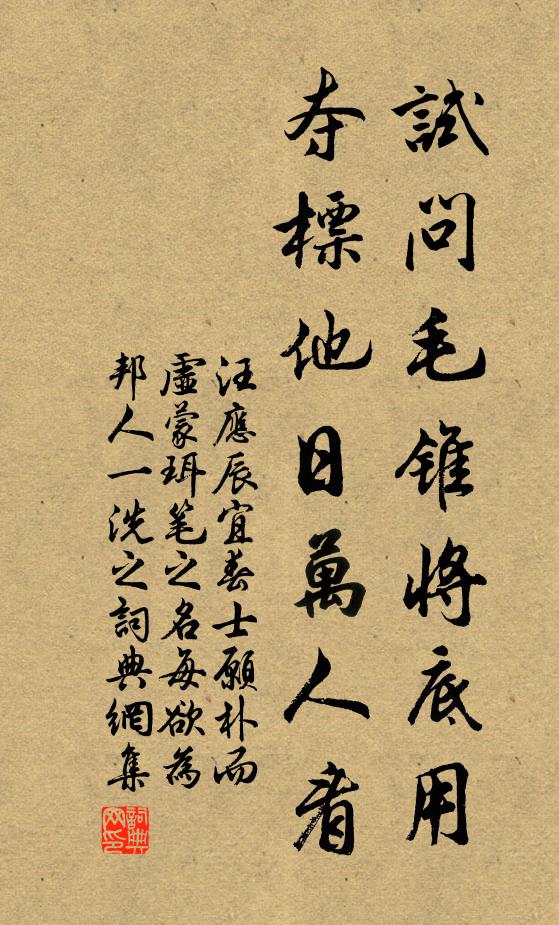 試問毛錐將底用
夺標他日萬人看
汪應辰宜春士願朴而
虛蒙珥笔之名每欲為
邦人一洗之詞典網集
詞典
网印